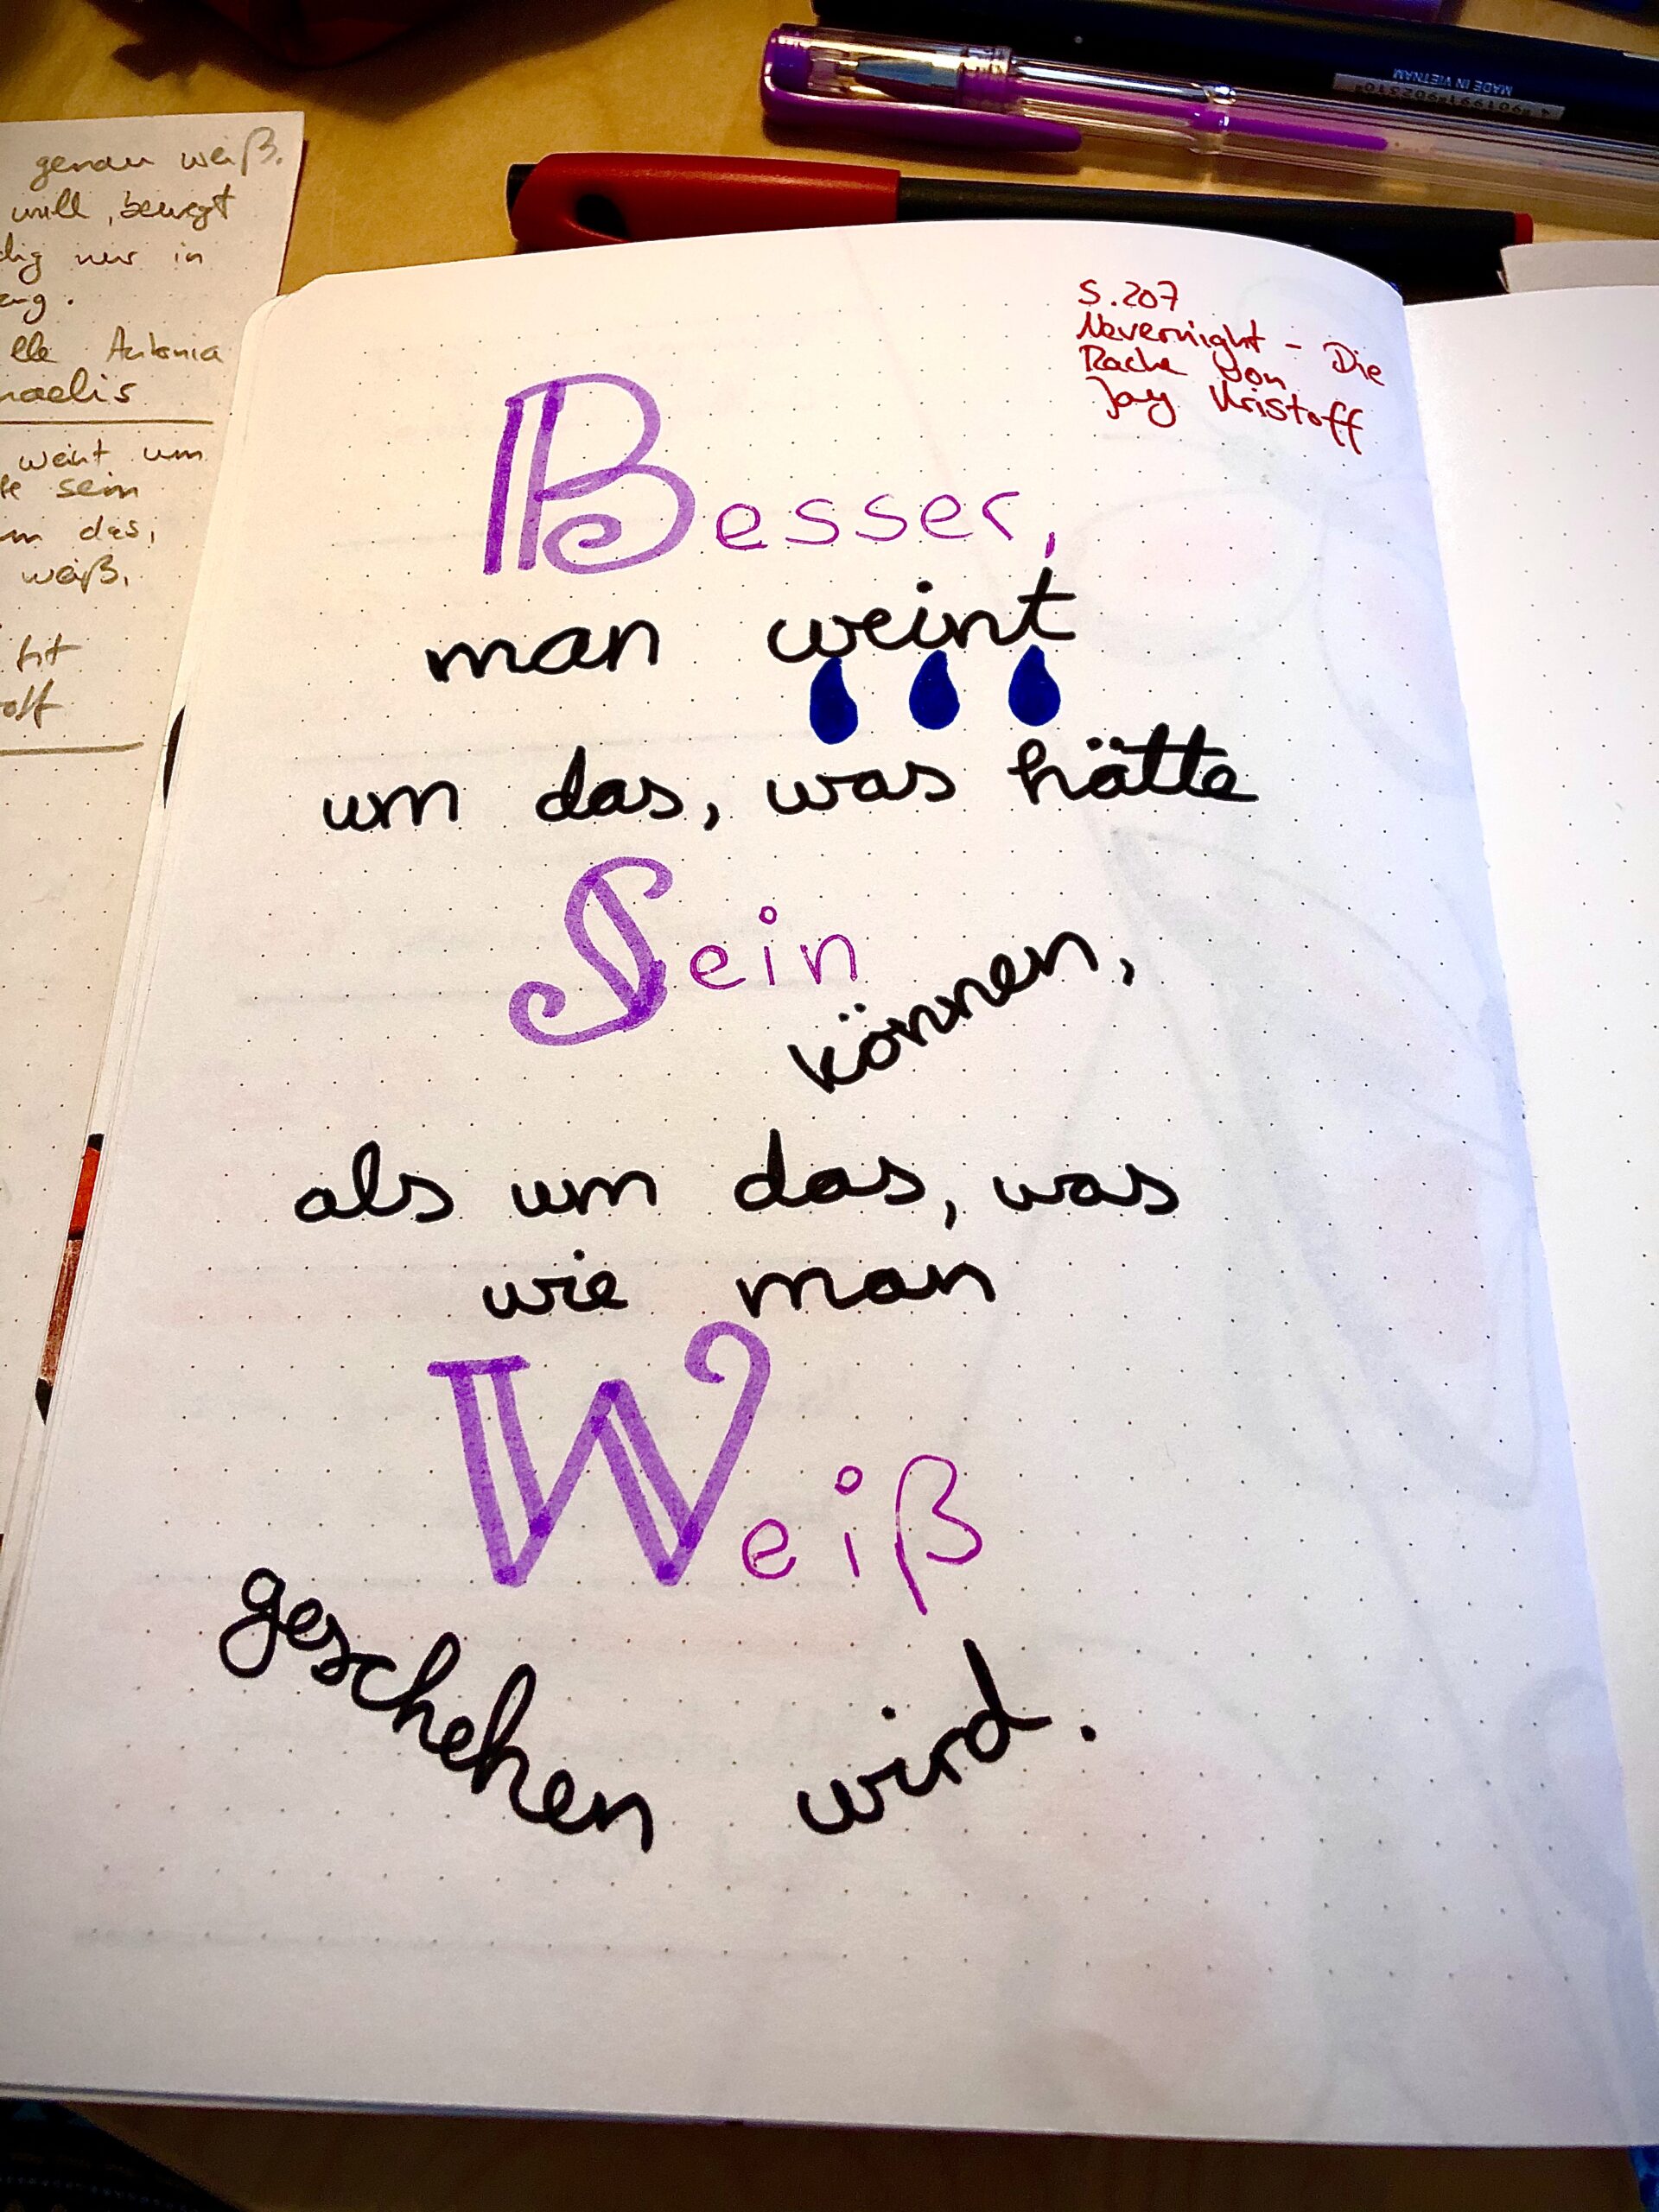 MADE IN VIETNAM
genau weiß.
will, bewegt
nur in
Antonia
weint um
sein
das,
weiß,
S.207
Nevernight - Die
Rache von
Jay Kristoff
Besser,
man weint
um das, was hätte
Sein
können,
als um das, was
wie man
Weiß
geschehen wird.